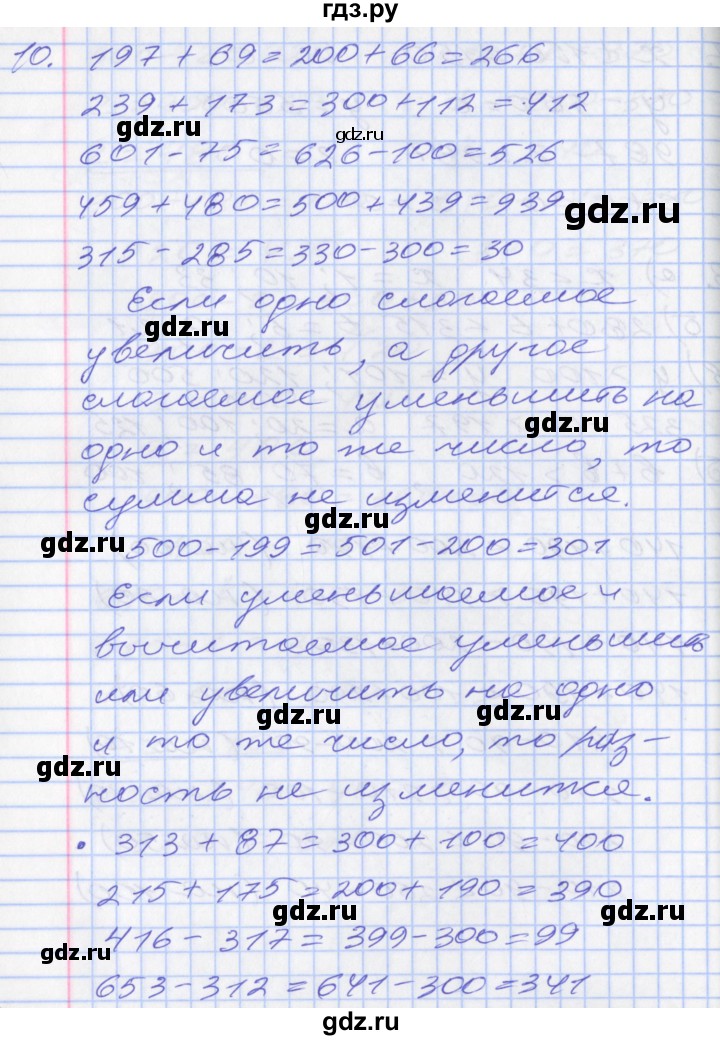 гдз.ру
10. 197 + 69 = 200 + 66 = 266
239 + 173 = 300 + 112 = 412
gdz.ru
gdz.ru
601 - 75 = 626 - 100 = 526
459 + 480 = 500 + 439 = 939
gdz.ru
315 - 285 = 330 - 300 = 30
Если одно слагаемое
gdz.ru
увеличить, а другое
слагаемое уменьшить на
gdz.ru
одно и то же число, то
сумма не изменится.
gdz.ru
gdz.ru
500 - 199 = 501 - 200 = 301
Если уменьшаемое и
вычитаемое уменьшить
или увеличить на одно
gdz.ru
gdz.ru
и то же число, то раз-
gdz.ru
ность не изменится.
• 313 + 87 = 300 + 100 = 400
215 + 175 = 200 + 190 = 390
gdz.ru
gdz.ru
416 - 317 = 399 - 300 = 99
gdz.ru
653 - 312 = 641 - 300 = 341
gdz.ru